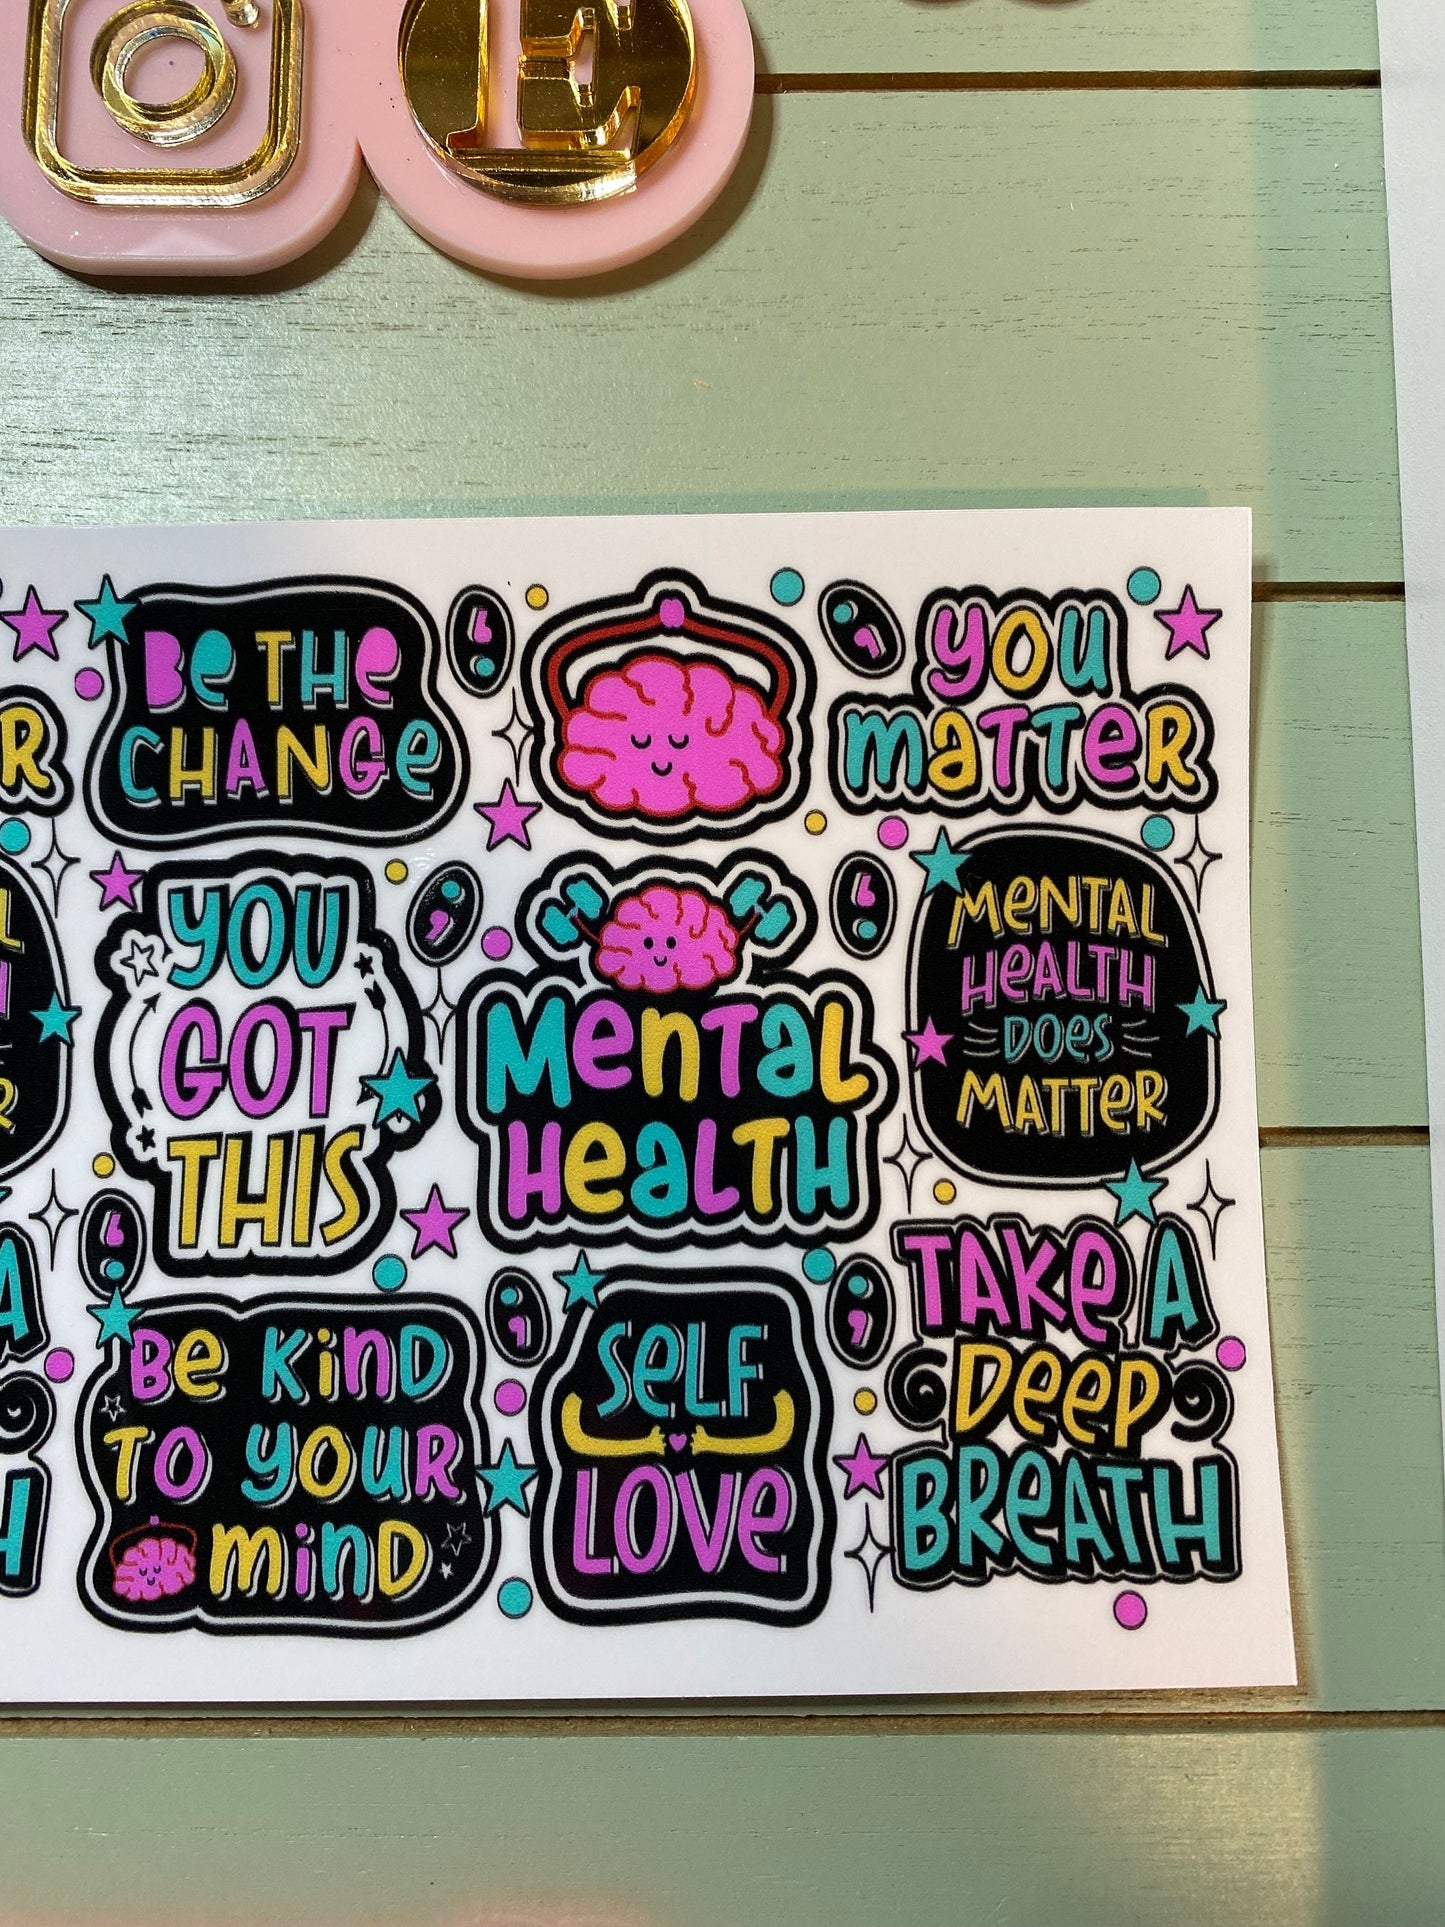 E
BE THE
CHANGE
YOU
MATTER
R
YOU
GOT
THIS
MENTAL
HEALTH
MENTAL
HEALTH
DOES
MATTER
L
H
R
BE KIND
TO YOUR
MIND
SELF
LOVE
TAKE A
DEEP
BREATH
A
H